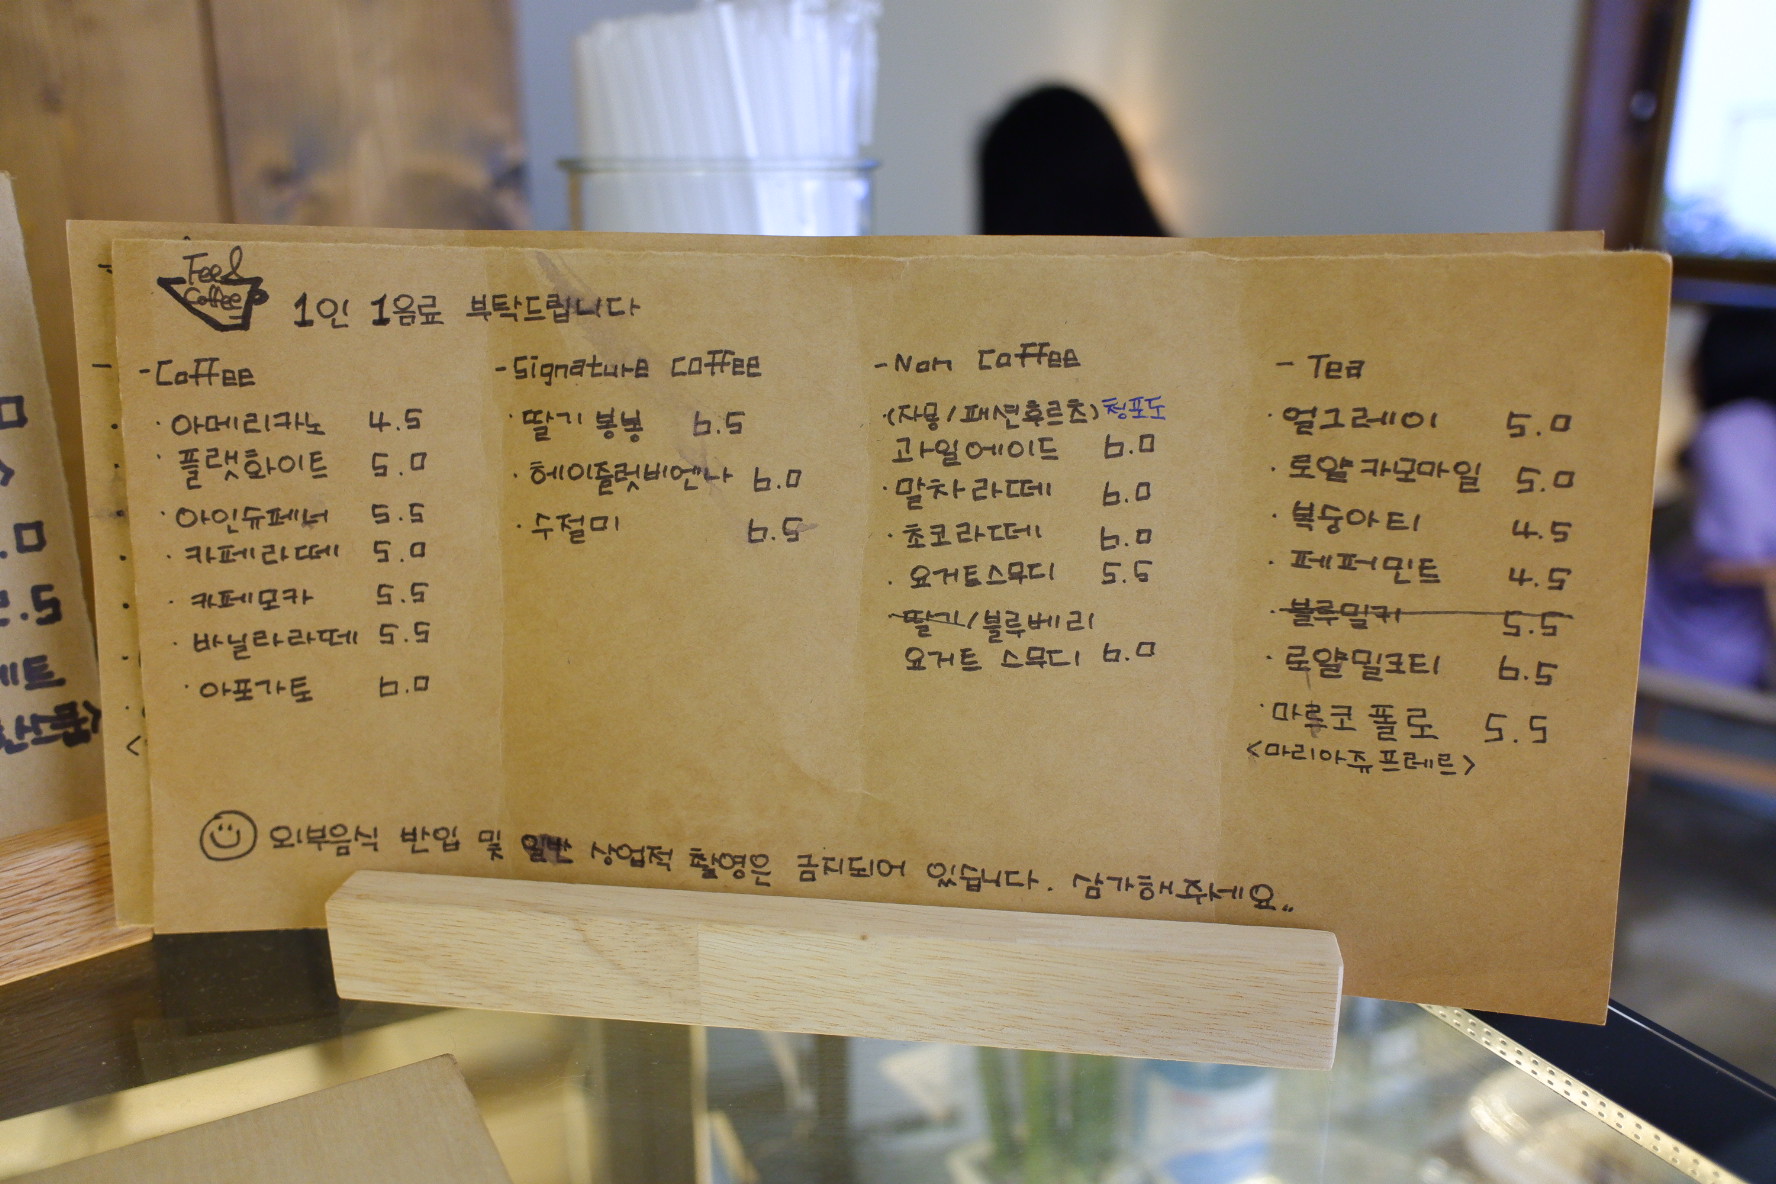 Feed
Coffee
1인 1음료 부탁드립니다
-Coffee
·아메리카노 4.5
·플랫화이트 5.0
·아인슈페너 5.5
·카페라떼 5.0
·카페모카 5.5
·바닐라라떼 5.5
·아포가토 6.0
-Signature coffee
·딸기봉봉 6.5
·헤이즐럿비엔나 6.0
·수절미 6.5
-Non Coffee
·(자몽/패션후르츠)청포도
과일에이드 6.0
·말차라떼 6.0
·초코라떼 6.0
·요거트스무디 5.5
·딸기/블루베리
요거트 스무디 6.0
- Tea
·얼그레이 5.0
·로얄카모마일 5.0
·복숭아티 4.5
·페퍼민트 4.5
·블루밀키 5.5
·로얄밀크티 6.5
·마르코폴로 5.5
<마리아쥬프레르>
외부음식 반입 및 일반 상업적 촬영은 금지되어 있습니다. 삼가해주세요..